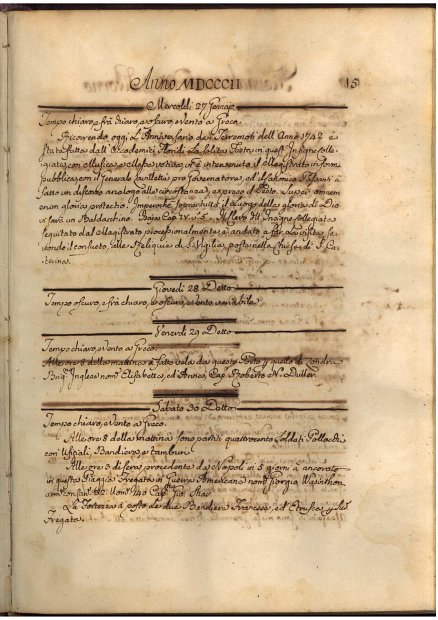 Anno MDCCCII
15
Mercoldì 27 Gennaio
Tempo chiaro, e frà chiaro, e oscuro, e Vento a Greco.
Ricorrendo oggi L'Anniversario de Terremoti dell'Anno 1742 è
stata fatta dall'Accademici la solita Festa in quest'Insigne Colle-
giata con Musica, e Messa votiva, v'è intervenuto il Magistrato in forma
pubblica, con il Generale pro Governatore, ed il
fatto un discorso analogo alla circostanza, e preso il Testo, Super omnem
enim gloria protectio. Imperochè sopra tutto il luogo della gloria di Dio
vi sarà un Baldacchino. Cap. IV. v. 5. Ill. Insigne Collegiata
seguitata dal Magistrato processionalmente è andata a far la visita, se-
condo il consueto, alle Reliquie di S. Vigilia, poste nella Chiesa di S. Ca-
terina.
Giovedì 28 Detto
Tempo oscuro, e frà chiaro, e oscuro, e Vento variabile.
Venerdì 29 Detto
Tempo chiaro, e Vento a Greco.
Alle ore 8 della mattina à fatto vela da questo Porto p quello di Londra
Brig.º Inglese nom.º Elisabetta, ed Anna, Cap. Roberto N. Duller.
Sabato 30 Detto
Tempo chiaro, e Vento a Greco.
Alle ore 8 della mattina sono partiti quattrocento Soldati Pollacchi
con Ufiziali, Bandiera, e tamburi.
Alle ore 3 di sera procedente da Napoli in 5 giorni à ancorato
in questa Spiaggia Fregata in Guerra Americana nom.ª Giorgia Wasinthon
arm. con Can. 32. Uom. 140 Cap. Gio: Shav.
La Fortezza à posto le due Bandiere Francese, ed Etrusca p la
Fregata.